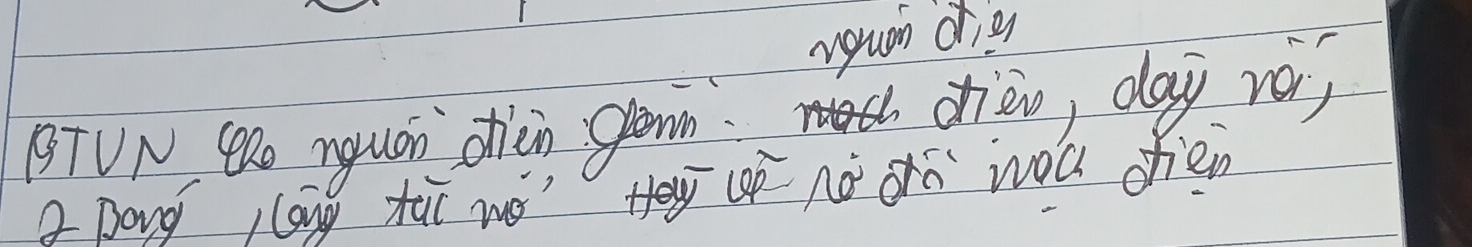 nguồn điện
BTVN cho nguồn điện gồm: điện, dây nối,
2 bóng, công tắc mở, Hãy vẽ sơ đồ mạch điện